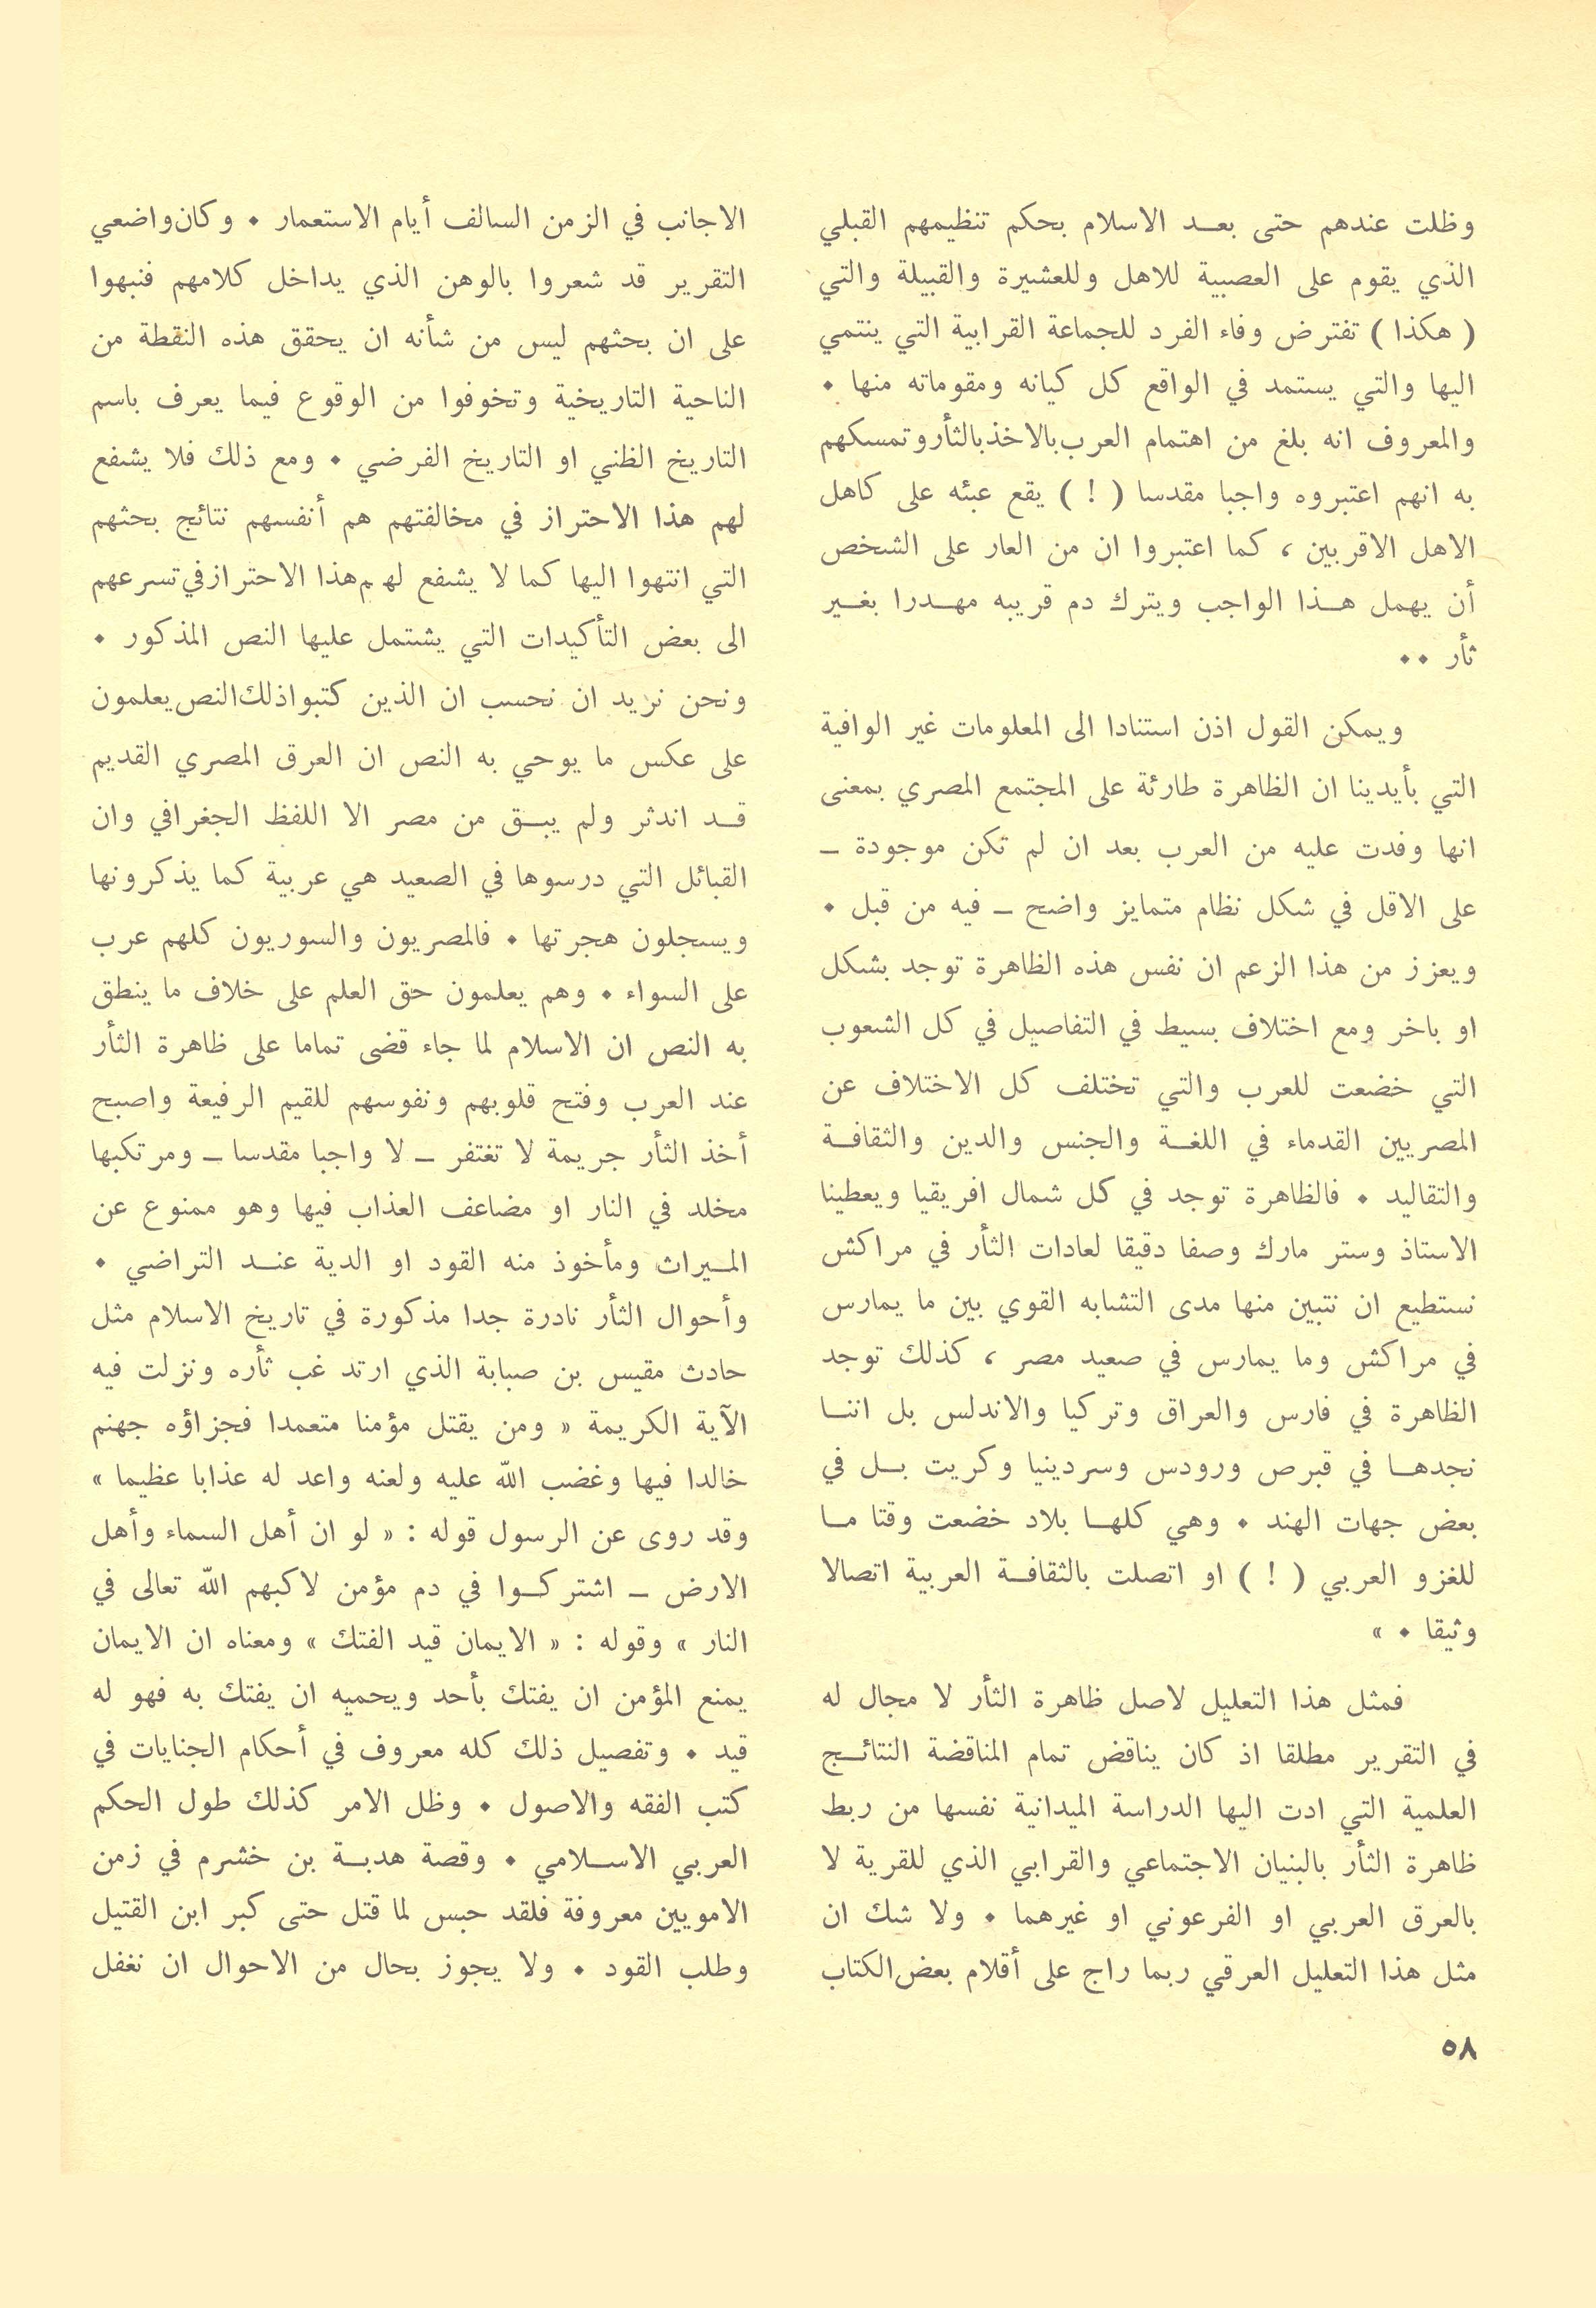 وظلت عندهم حتى بعد الاسلام بحكم تنظيمهم القبلي
الذي يقوم على العصبية للاهل وللعشيرة والقبيلة والتي
( هكذا ) تفترض وفاء الفرد للجماعة القرابية التي ينتمي
اليها والتي يستمد في الواقع كل كيانه ومقوماته منها ٠
والمعروف انه بلغ من اهتمام العرب بالاخذ بالثأر وتمسكهم
به انهم اعتبروه واجبا مقدسا ( ! ) يقع عبئه على كاهل
الاهل الاقربين ، كما اعتبروا ان من العار على الشخص
أن يهمل هذا الواجب ويترك دم قريبه مهدرا بغير
ثأر ٠٠
ويمكن القول اذن استنادا الى المعلومات غير الوافية
التي بأيدينا ان الظاهرة طارئة على المجتمع المصري بمعنى
انها وفدت عليه من العرب بعد ان لم تكن موجودة ـ
على الاقل في شكل نظام متمايز واضح ـ فيه من قبل ٠
ويعزز من هذا الزعم ان نفس هذه الظاهرة توجد بشكل
او باخر ومع اختلاف بسيط في التفاصيل في كل الشعوب
التي خضعت للعرب والتي تختلف كل الاختلاف عن
المصريين القدماء في اللغة والجنس والدين والثقافة
والتقاليد ٠ فالظاهرة توجد في كل شمال افريقيا ويعطينا
الاستاذ وستر مارك وصفا دقيقا لعادات الثأر في مراكش
نستطيع ان نتبين منها مدى التشابه القوي بين ما يمارس
في مراكش وما يمارس في صعيد مصر ، كذلك توجد
الظاهرة في فارس والعراق وتركيا والاندلس بل اننا
نجدها في قبرص ورودس وسردينيا وكريت بل في
بعض جهات الهند ٠ وهي كلها بلاد خضعت وقتا ما
للغزو العربي ( ! ) او اتصلت بالثقافة العربية اتصالا
وثيقا ٠ »
فمثل هذا التعليل لاصل ظاهرة الثأر لا مجال له
في التقرير مطلقا اذ كان يناقض تمام المناقضة النتائج
العلمية التي ادت اليها الدراسة الميدانية نفسها من ربط
ظاهرة الثأر بالبنيان الاجتماعي والقرابي الذي للقرية لا
بالعرق العربي او الفرعوني او غيرهما ٠ ولا شك ان
مثل هذا التعليل العرقي ربما راج على أقلام بعض الكتاب
الاجانب في الزمن السالف أيام الاستعمار ٠ وكان واضعي
التقرير قد شعروا بالوهن الذي يداخل كلامهم فنبهوا
على ان بحثهم ليس من شأنه ان يحقق هذه النقطة من
الناحية التاريخية وتخوفوا من الوقوع فيما يعرف باسم
التاريخ الظني او التاريخ الفرضي ٠ ومع ذلك فلا يشفع
لهم هذا الاحتراز في مخالفتهم هم أنفسهم نتائج بحثهم
التي انتهوا اليها كما لا يشفع لهم هذا الاحتراز في تسرعهم
الى بعض التأكيدات التي يشتمل عليها النص المذكور ٠
ونحن نريد ان نحسب ان الذين كتبوا ذلك النص يعلمون
على عكس ما يوحي به النص ان العرق المصري القديم
قد اندثر ولم يبق من مصر الا اللفظ الجغرافي وان
القبائل التي درسوها في الصعيد هي عربية كما يذكرونها
ويسجلون هجرتها ٠ فالمصريون والسوريون كلهم عرب
على السواء ٠ وهم يعلمون حق العلم على خلاف ما ينطق
به النص ان الاسلام لما جاء قضى تماما على ظاهرة الثأر
عند العرب وفتح قلوبهم ونفوسهم للقيم الرفيعة واصبح
أخذ الثأر جريمة لا تغتفر ـ لا واجبا مقدسا ـ ومرتكبها
مخلد في النار او مضاعف العذاب فيها وهو ممنوع عن
الميراث ومأخوذ منه القود او الدية عند التراضي ٠
وأحوال الثأر نادرة جدا مذكورة في تاريخ الاسلام مثل
حادث مقيس بن صبابة الذي ارتد غب ثأره ونزلت فيه
الآية الكريمة « ومن يقتل مؤمنا متعمدا فجزاؤه جهنم
خالدا فيها وغضب الله عليه ولعنه واعد له عذابا عظيما »
وقد روى عن الرسول قوله : « لو ان أهل السماء وأهل
الارض ـ اشتركوا في دم مؤمن لاكبهم الله تعالى في
النار » وقوله : « الايمان قيد الفتك » ومعناه ان الايمان
يمنع المؤمن ان يفتك بأحد ويحميه ان يفتك به فهو له
قيد ٠ وتفصيل ذلك كله معروف في أحكام الجنايات في
كتب الفقه والاصول ٠ وظل الامر كذلك طول الحكم
العربي الاسلامي ٠ وقصة هدبة بن خشرم في زمن
الامويين معروفة فلقد حبس لما قتل حتى كبر ابن القتيل
وطلب القود ٠ ولا يجوز بحال من الاحوال ان نغفل
٥٨